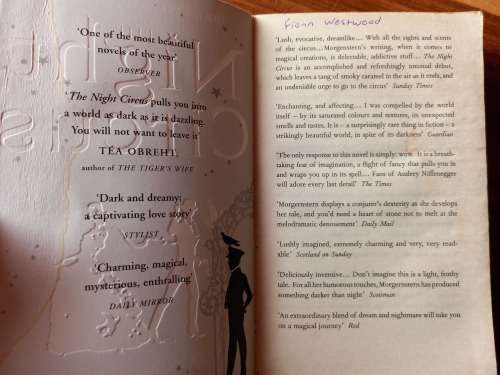 'One of the most beautiful
novels of the year'
OBSERVER
'The Night Circus pulls you into
a world as dark as it is dazzling.
You will not want to leave it'
TÉA OBREHT,
author of THE TIGER'S WIFE
'Dark and dreamy:
a captivating love story'
STYLIST
'Charming, magical,
mysterious, enthralling'
DAILY MIRROR
Fionn Westwood
'Lush, evocative, dreamlike… With all the sights and scents
of the circus… Morgenstern's writing, when it comes to
magical creations, is delectable, addictive stuff… The Night
Circus is an accomplished and refreshingly unusual debut,
which leaves a tang of smoky caramel in the air as it ends, and
an undeniable urge to go to the circus' Sunday Times
'Enchanting, and affecting… I was compelled by the world
itself – by its saturated colours and textures, its unexpected
smells and tastes. It is – a surprisingly rare thing in fiction – a
strikingly beautiful world, in spite of its darkness' Guardian
'The only response to this novel is simply: wow. It is a breath-
taking feat of imagination, a flight of fancy that pulls you in
and wraps you up in its spell… Fans of Audrey Niffenegger
will adore every last detail' The Times
'Morgenstern displays a conjuror's dexterity as she develops
her tale, and you'd need a heart of stone not to melt at the
melodramatic denouement' Daily Mail
'Lushly imagined, extremely charming and very, very read-
able' Scotland on Sunday
'Deliciously inventive… Don't imagine this is a light, frothy
tale. For all her humorous touches, Morgenstern has produced
something darker than night' Scotsman
'An extraordinary blend of dream and nightmare will take you
on a magical journey' Red